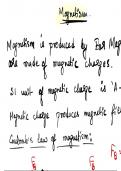 Magnetism
Magnetism is produced by Bar Mag
are made of magnetic charges.
SI unit of magnetic charge is 'A-
Magnetic charge produces magnetic fie
Coulomb's law of magnetism:
F